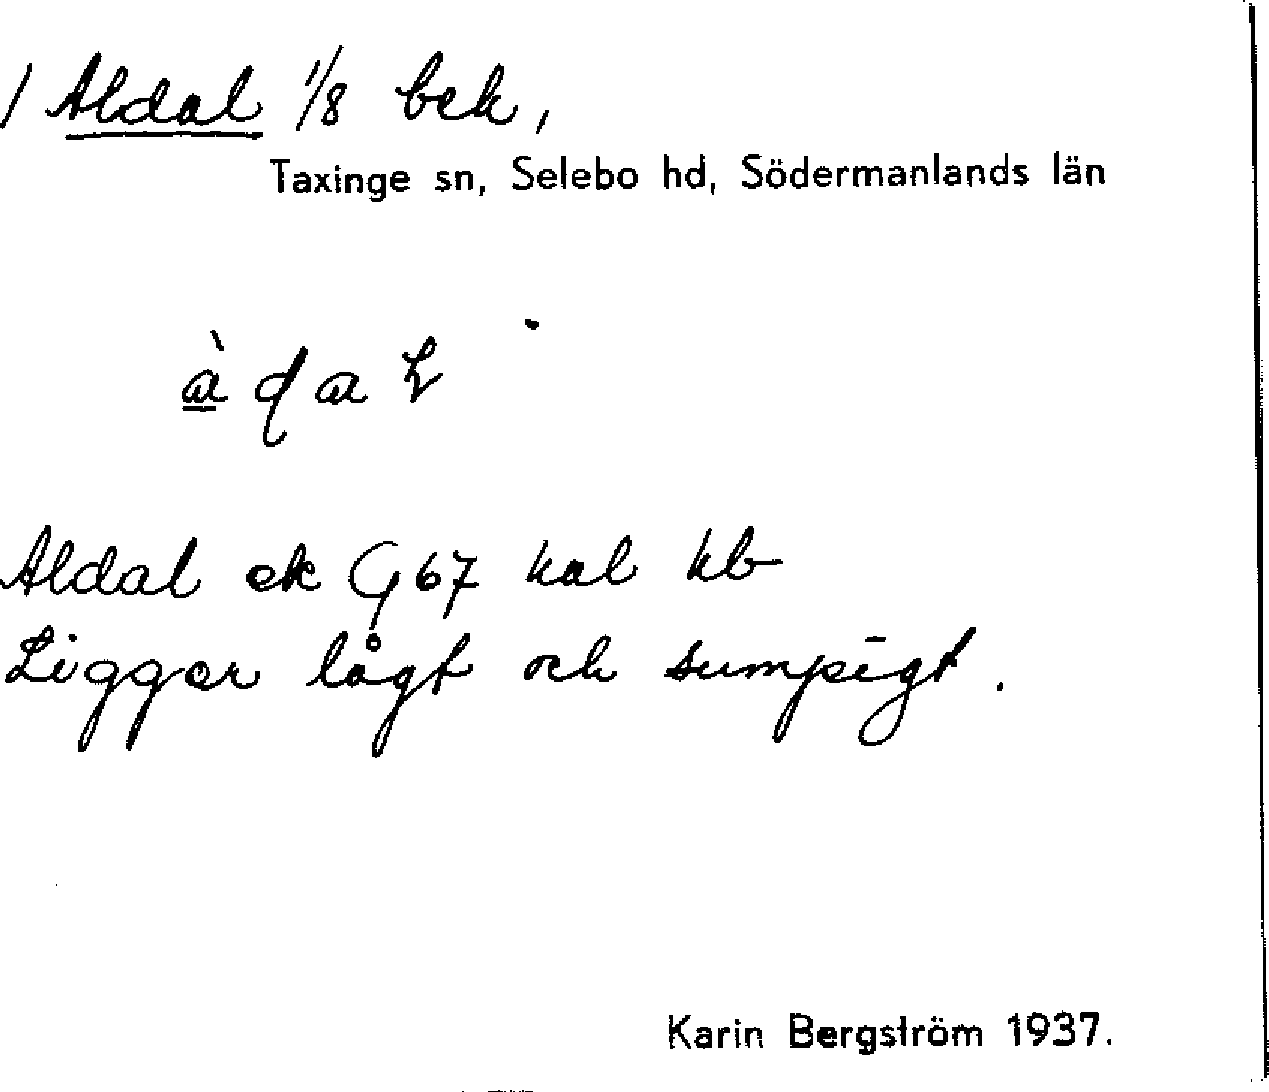 / Aldal 1/8 bek,
Taxinge sn, Selebo hd, Södermanlands län
Aldal ek G 67 kal kb
Ligger lågt och sumpigt.
Karin Bergström 1937.